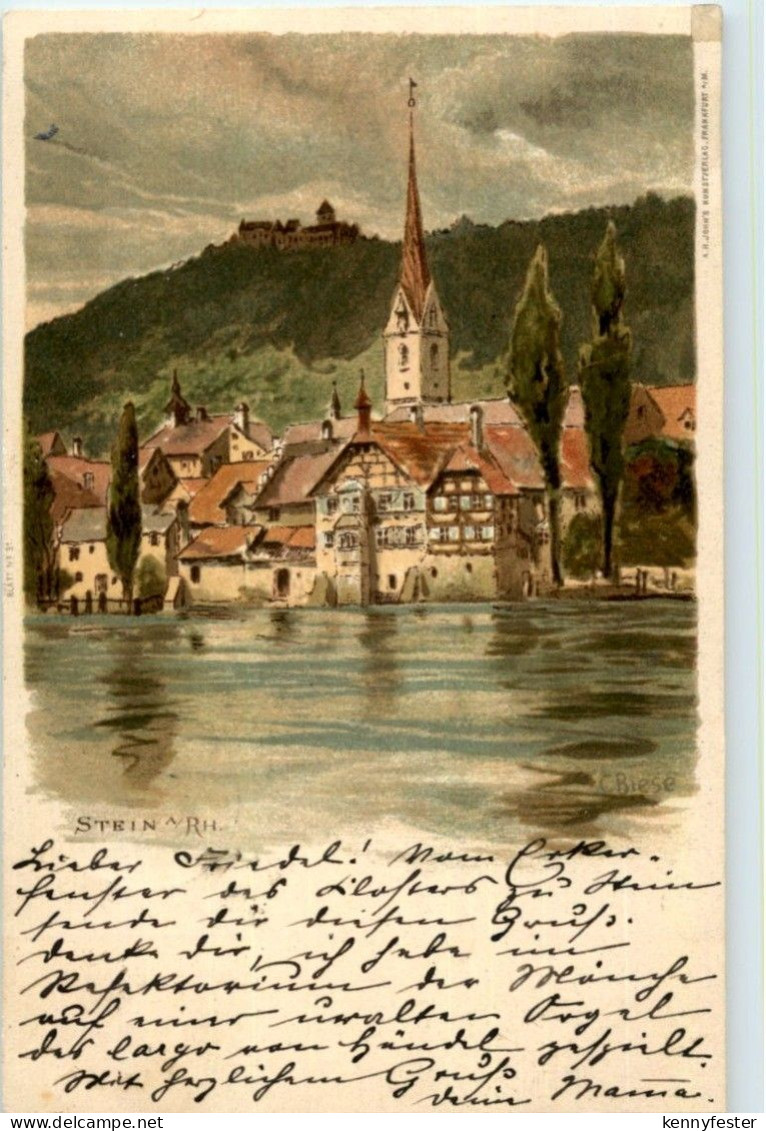 A.H. JOHN'S KUNSTVERLAG, FRANKFURT A/M.
BLATT No 31
C. Biese
STEIN A/RH.
Lieber Friedel! Vom Erker-
fenster des Klosters zu Stein
sende dir diesen Gruß.
denke dir, ich habe im
Refektorium der Mönche
auf einer uralten Orgel
das largo von Händel gespielt.
Mit herzlichem Gruß
deine Mama.
kennyfester
delcampe.net